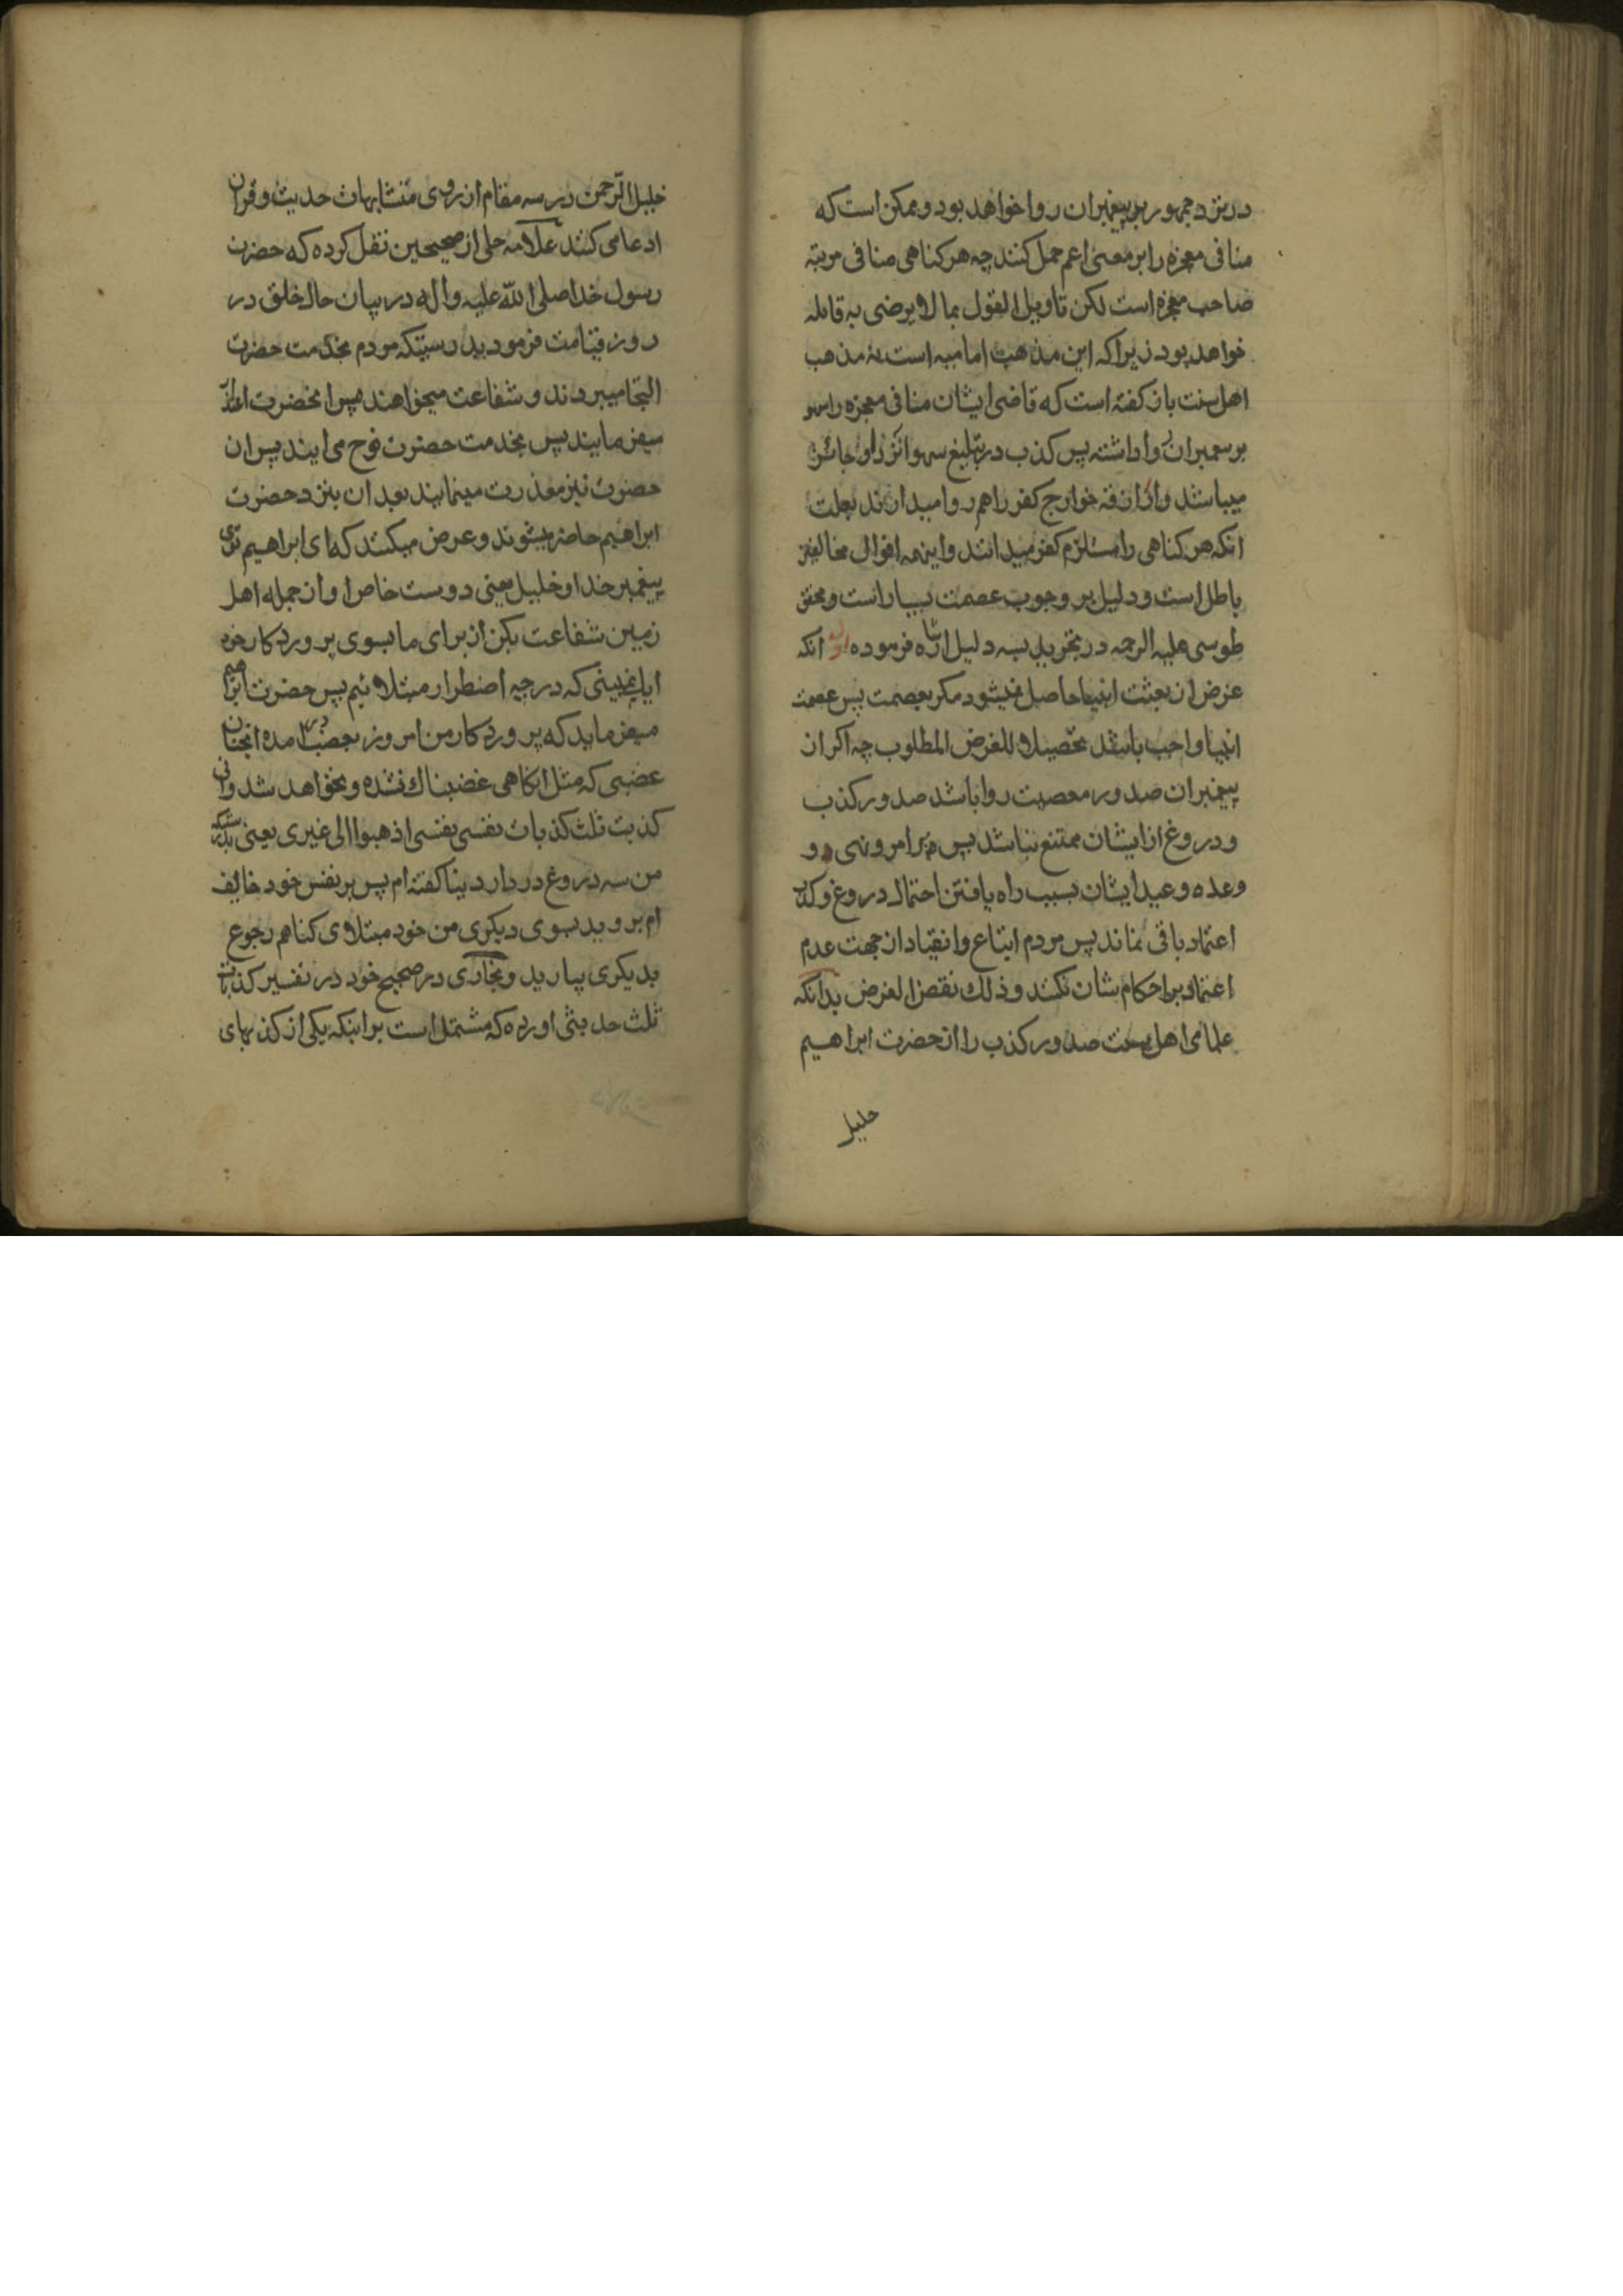 در نزد جمهور بر پیغمبران روا خواهد بود و ممکن است که
منافی معجزه را بر معنی اعم حمل کنند چه هر کناهی منافی مرتبه
صاحب معجزه است لکن تاویل القول بما لا یرضی به قائله
خواهد بود زیرا که این مذهب امامیه است نه مذهب
اهل سنت باز کفته است که قاضی ایشان منافی معجزه را سهو
بر پیغمبران روا داشته پس کذب در تبلیغ سهوا نزد او جائز
میباشد و ازارقه خوارج کفر را هم روا میدارند بعلت
انکه هر کناهی را مستلزم کفر میدانند و اینهمه اقوال مخالفین
باطل است و دلیل بر وجوب عصمت بسیار است و محقق
طوسی علیه الرحمه در تجرید بسه دلیل اشاره فرموده اول انکه
غرض از بعثت انبیا حاصل نمیشود مکر بعصمت پس عصمت
انبیا واجب باشد تحصیلا للغرض المطلوب چه اکر از
پیغمبران صدور معصیت روا باشد صدور کذب
و دروغ از ایشان ممتنع نباشد پس بر امر و نهی و
وعده و عید ایشان بسبب راه یافتن احتمال دروغ و کذب
اعتماد باقی نماند پس مردم اتباع و انقیاد از جهت عدم
اعتماد بر احکام شان نکنند و ذلک نقض الغرض بدانکه
علمای اهل سنت صدور کذب را از حضرت ابراهیم
خلیل
خلیل الرحمن در سه مقام از روی متشابهات حدیث و قران
ادعا می کنند علامه حلی از صحیحین نقل کرده که حضرت
رسول خدا صلی الله علیه و اله در بیان حال خلق در
روز قیامت فرمود بدرستیکه مردم بخدمت حضرت
التجا میبردند و شفاعت میخواهند پس انحضرت اعتذار
میفرمایند پس بخدمت حضرت نوح می ایند پس ان
حضرت نیز معذرت مینمایند بعد ان بنزد حضرت
ابراهیم حاضر میشوند و عرض میکنند که ای ابراهیم توی
پیغمبر خدا و خلیل یعنی دوست خاص او از جمله اهل
زمین شفاعت بکن از برای ما بسوی پروردکار خود
ایا نمیبینی که در چه اضطرار مبتلائیم پس حضرت ابراهیم
میفرماید که پروردکار من امروز بغضب در امده انچنان
غضبی که مثل ان کاهی غضبناک نشده و نخواهد شد و انی
کذبت ثلث کذبات نفسی نفسی اذهبوا الی غیری یعنی بدرستیکه
من سه دروغ در دار دنیا کفته ام پس بر نفس خود خایف
ام بروید بسوی دیکری من خود مبتلای کناهم رجوع
بدیکری بیارید و بخاری در صحیح خود در تفسیر کذبات
ثلث حدیثی اورده که مشتمل است بر اینکه یکی از کذبهای